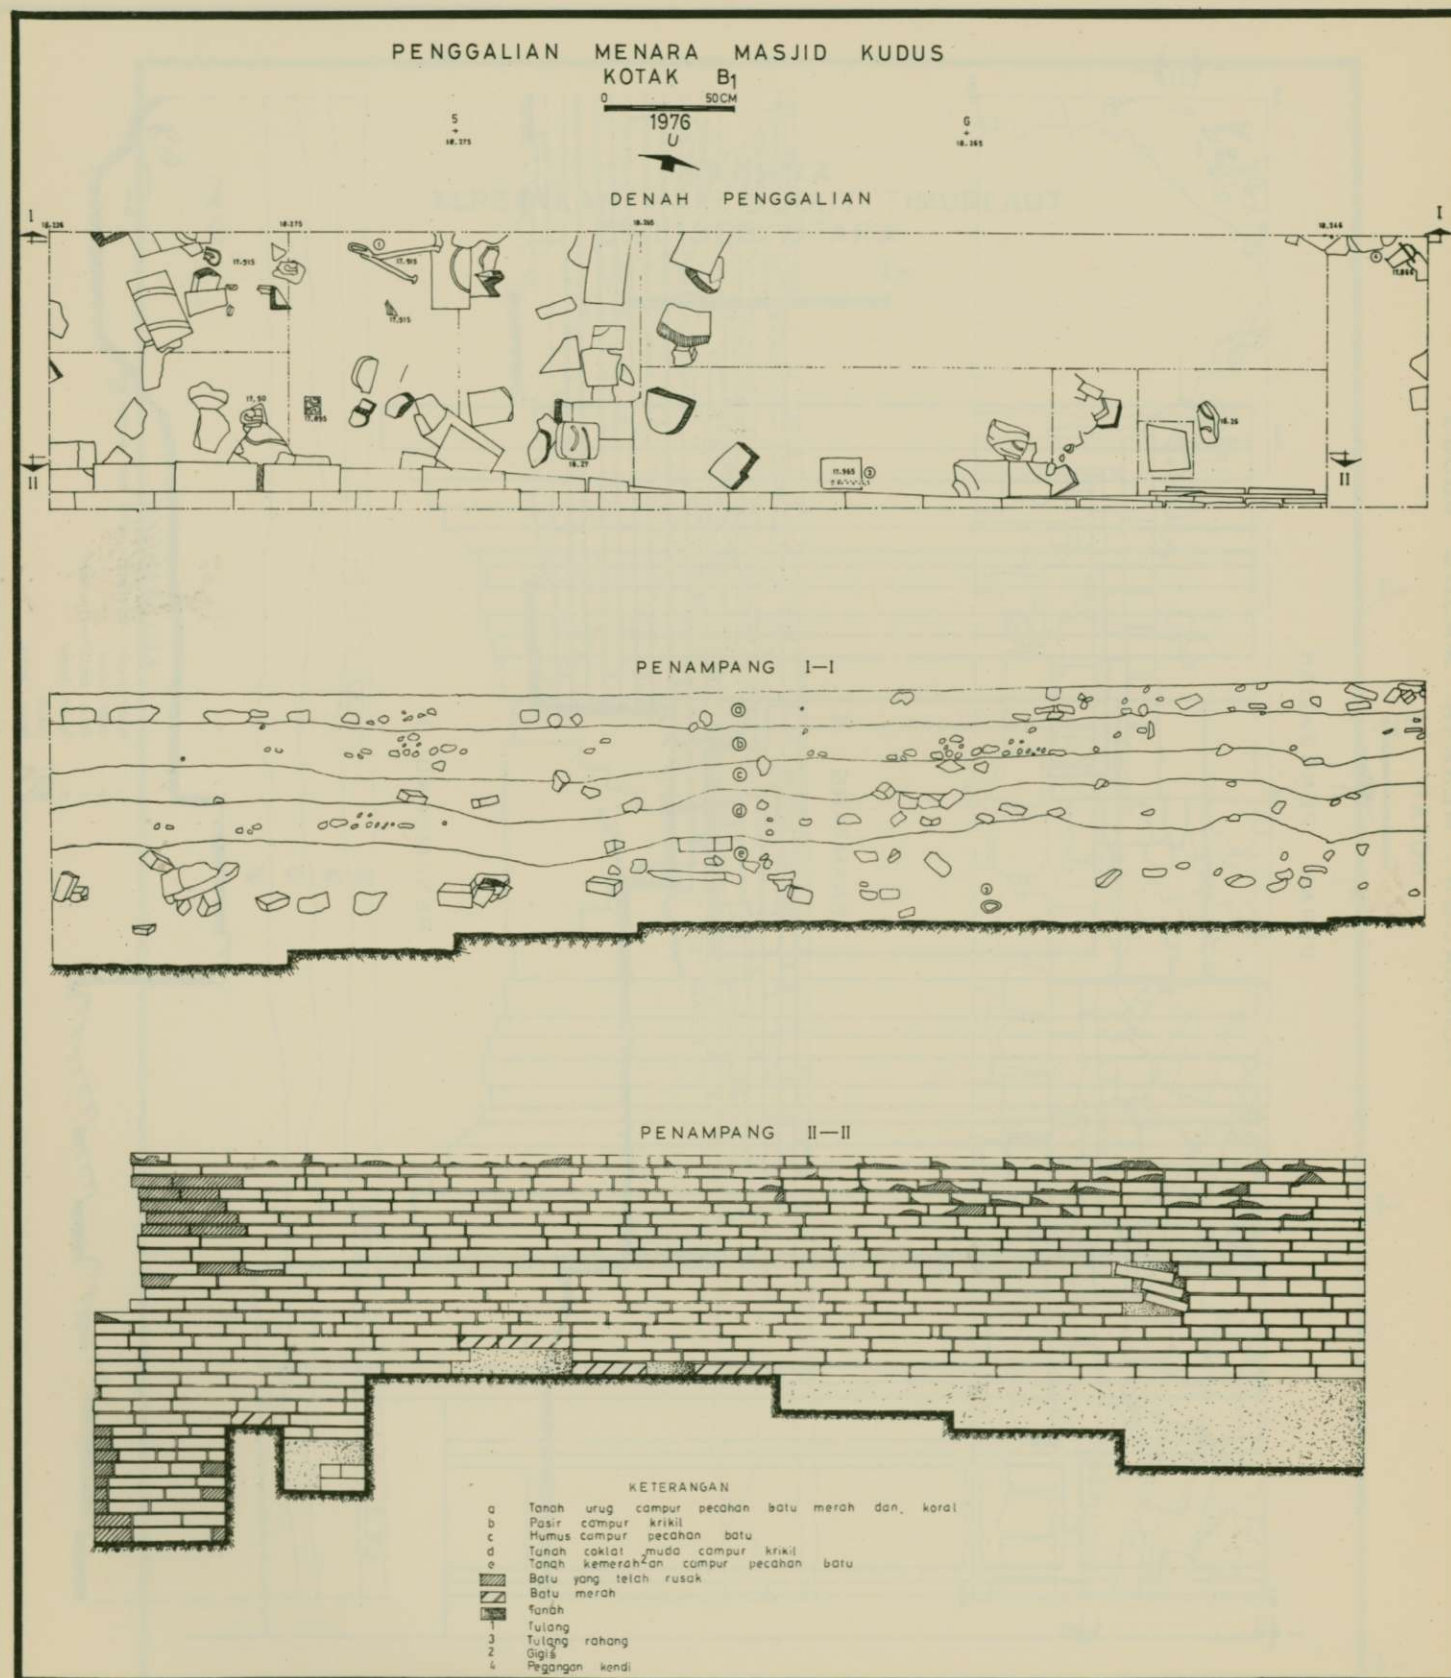 PENGGALIAN MENARA MASJID KUDUS
KOTAK B1
0 50CM
1976
U
5
+
18.275
6
+
18.265
DENAH PENGGALIAN
I
18.226
18.275
18.265
18.246
I
17.515
1
17.515
17.515
4
17.866
17.50
17.495
18.27
17.565
3
18.26
II
II
PENAMPANG I—I
a
b
c
d
e
2
PENAMPANG II—II
KETERANGAN
a Tanah urug campur pecahan batu merah dan, koral
b Pasir campur krikil
c Humus campur pecahan batu
d Tanah coklat muda campur krikil
e Tanah kemerah2an campur pecahan batu
Batu yang telah rusak
Batu merah
Tanah
1 Tulang
3 Tulang rahang
2 Gigi2
4 Pegangan kendi